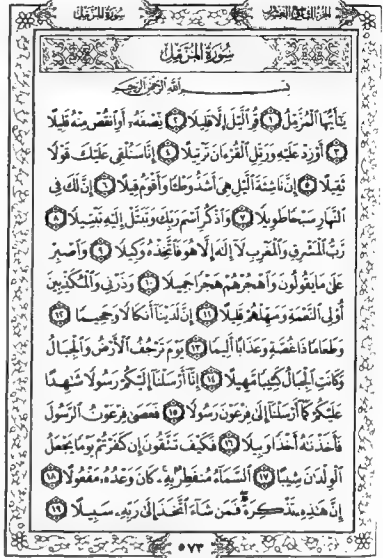 سُورَةُ المُزَّمِّل الجُزْءُ التَّاسِعُ وَالعِشْرُونَ
سُورَةُ المُزَّمِّل
بِسْمِ اللَّهِ الرَّحْمَٰنِ الرَّحِيمِ
يَٰٓأَيُّهَا ٱلْمُزَّمِّلُ ١ قُمِ ٱلَّيْلَ إِلَّا قَلِيلًا ٢ نِّصْفَهُۥٓ أَوِ ٱنقُصْ مِنْهُ قَلِيلًا
٣ أَوْ زِدْ عَلَيْهِ وَرَتِّلِ ٱلْقُرْءَانَ تَرْتِيلًا ٤ إِنَّا سَنُلْقِى عَلَيْكَ قَوْلًا
ثَقِيلًا ٥ إِنَّ نَاشِئَةَ ٱلَّيْلِ هِىَ أَشَدُّ وَطْـًٔا وَأَقْوَمُ قِيلًا ٦ إِنَّ لَكَ فِى
ٱلنَّهَارِ سَبْحًا طَوِيلًا ٧ وَٱذْكُرِ ٱسْمَ رَبِّكَ وَتَبَتَّلْ إِلَيْهِ تَبْتِيلًا ٨
رَّبُّ ٱلْمَشْرِقِ وَٱلْمَغْرِبِ لَآ إِلَٰهَ إِلَّا هُوَ فَٱتَّخِذْهُ وَكِيلًا ٩ وَٱصْبِرْ
عَلَىٰ مَا يَقُولُونَ وَٱهْجُرْهُمْ هَجْرًا جَمِيلًا ١٠ وَذَرْنِى وَٱلْمُكَذِّبِينَ
أُو۟لِى ٱلنَّعْمَةِ وَمَهِّلْهُمْ قَلِيلًا ١١ إِنَّ لَدَيْنَآ أَنكَالًا وَجَحِيمًا ١٢
وَطَعَامًا ذَا غُصَّةٍ وَعَذَابًا أَلِيمًا ١٣ يَوْمَ تَرْجُفُ ٱلْأَرْضُ وَٱلْجِبَالُ
وَكَانَتِ ٱلْجِبَالُ كَثِيبًا مَّهِيلًا ١٤ إِنَّآ أَرْسَلْنَآ إِلَيْكُمْ رَسُولًا شَٰهِدًا
عَلَيْكُمْ كَمَآ أَرْسَلْنَآ إِلَىٰ فِرْعَوْنَ رَسُولًا ١٥ فَعَصَىٰ فِرْعَوْنُ ٱلرَّسُولَ
فَأَخَذْنَٰهُ أَخْذًا وَبِيلًا ١٦ فَكَيْفَ تَتَّقُونَ إِن كَفَرْتُمْ يَوْمًا يَجْعَلُ
ٱلْوِلْدَٰنَ شِيبًا ١٧ ٱلسَّمَآءُ مُنفَطِرٌۢ بِهِۦ ۚ كَانَ وَعْدُهُۥ مَفْعُولًا ١٨
إِنَّ هَٰذِهِۦ تَذْكِرَةٌ ۖ فَمَن شَآءَ ٱتَّخَذَ إِلَىٰ رَبِّهِۦ سَبِيلًا ١٩
٥٧٣